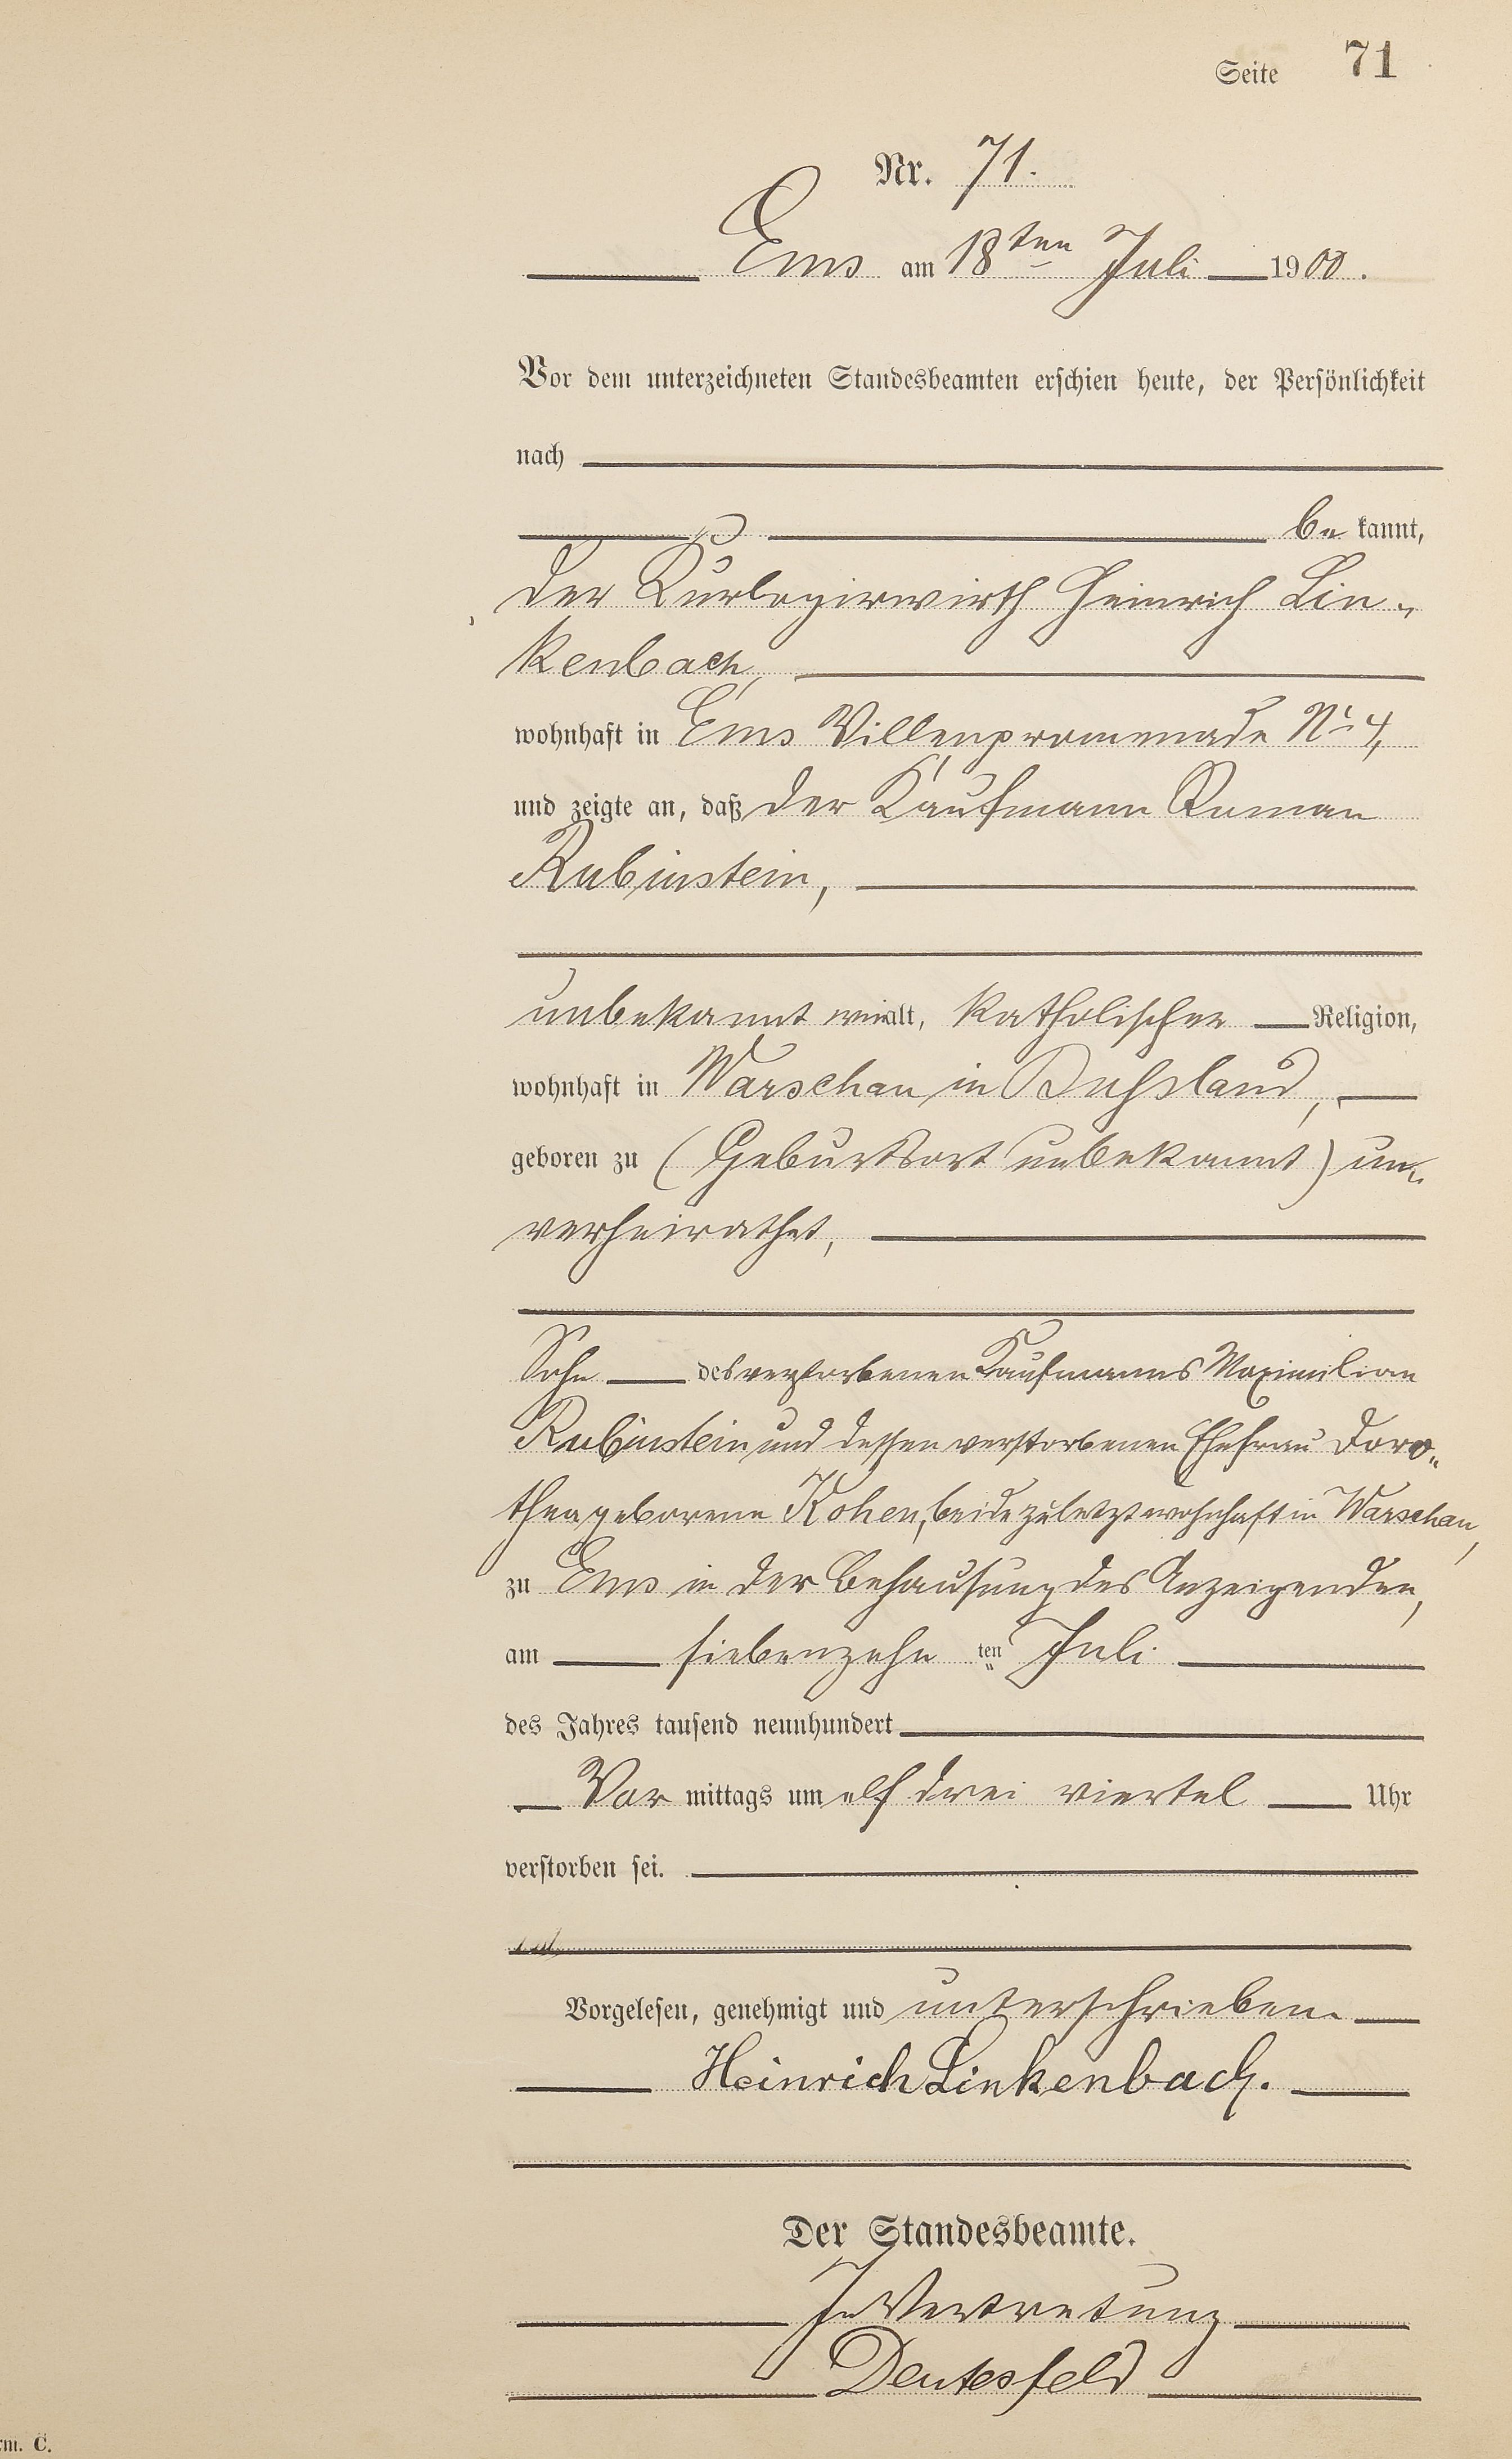 Seite 71
Nr. 71.
Ems am 18ten Juli 1900.
Vor dem unterzeichneten Standesbeamten erschien heute, der Persönlichkeit
nach
be kannt,
der Kurlogirwirth Heinrich Lin-
kenbach,
wohnhaft in Ems Villenpromenade No 4,
und zeigte an, daß der Kaufmann Roman
Rubinstein,
unbekannt wie alt, katholischer Religion,
wohnhaft in Warschau in Rußland,
geboren zu (Geburtsort unbekannt) un-
verheirathet,
Sohn des verstorbenen Kaufmanns Maximilian
Rubinstein und dessen verstorbenen Ehefrau Doro-
thea geborene Kohen, beide zuletzt wohnhaft in Warschau,
zu Ems in der Behausung des Anzeigenden,
am siebenzehn ten Juli
des Jahres tausend neunhundert
Vor mittags um elf drei viertel Uhr
verstorben sei.
Vorgelesen, genehmigt und unterschrieben.
Heinrich Linkenbach.
Der Standesbeamte.
In Vertretung
rm. C.